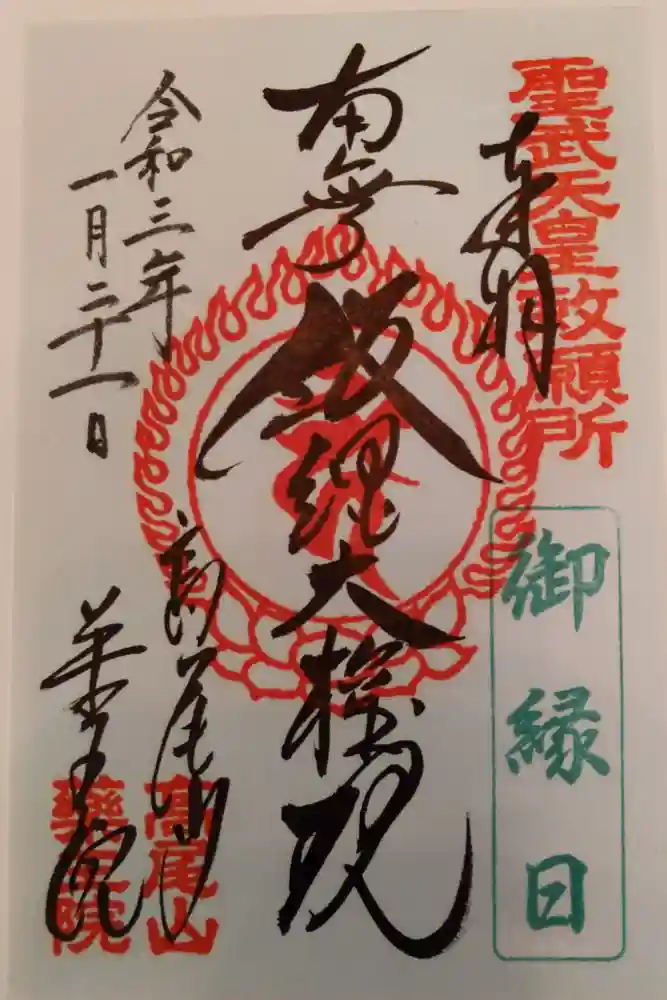 聖武天皇敕願所
奉拝
御縁日
南無飯縄大権現
令和三年
一月二十一日
高尾山
薬王院
高尾山
薬王院